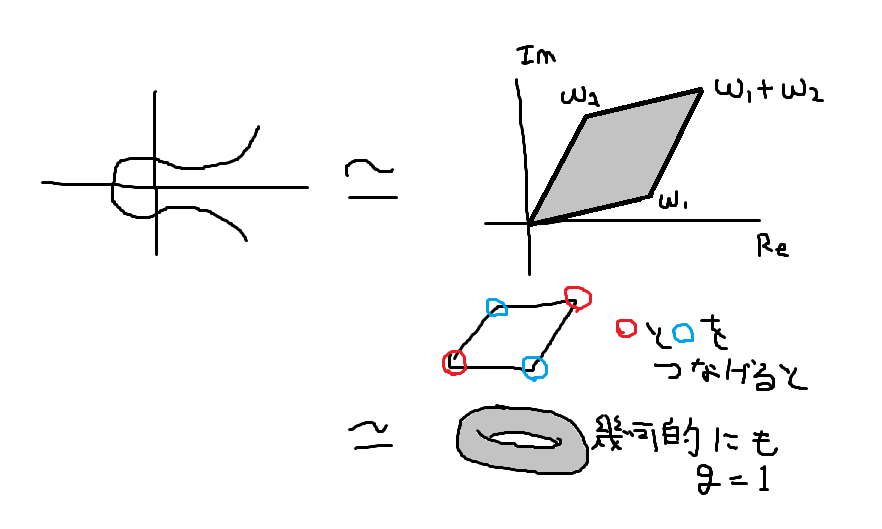 Im
ω₂
ω₁+ω₂
ω₁
Re
≃
○と○を
つなげると
≃
幾何的にも
g=1